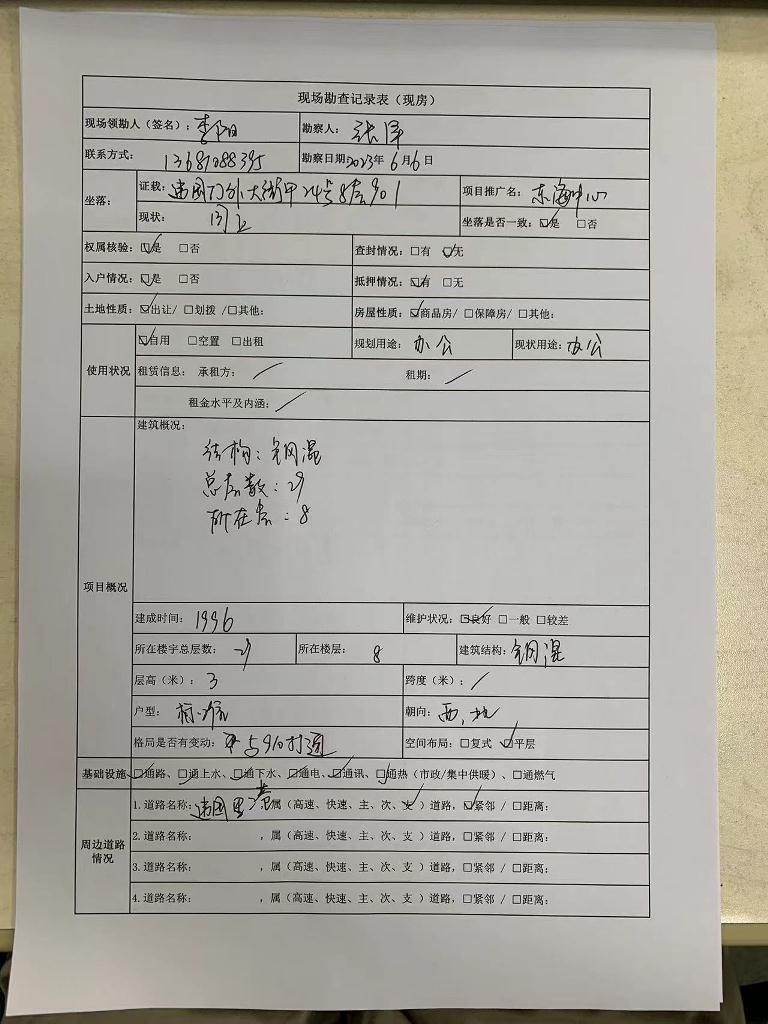 现场勘查记录表（现房）
现场领勘人（签名）：李阳 勘察人：张泽
联系方式： 勘察日期2023年6月6日
坐落： 证载：建国门外大街甲24号8层901 项目推广名：东海中心
现状：同上 坐落是否一致：☑是 □否
权属核验：☑是 □否 查封情况：□有 ☑无
入户情况：☑是 □否 抵押情况：☑有 □无
土地性质：☑出让/ □划拨 /□其他： 房屋性质：☑商品房/ □保障房/ □其他：
使用状况 ☑自用 □空置 □出租 规划用途：办公 现状用途：办公
租赁信息： 承租方：/ 租期：/
租金水平及内涵：/
项目概况 建筑概况：
结构：钢混
总层数：29
所在层：8
建成时间：1996 维护状况：☑良好 □一般 □较差
所在楼宇总层数：29 所在楼层：8 建筑结构：钢混
层高（米）：3 跨度（米）：/
户型： 朝向：西，北
格局是否有变动：与910打通 空间布局：□复式 ☑平层
基础设施 ☑通路、☑通上水、☑通下水、☑通电、☑通讯、☑通热（市政/集中供暖）、□通燃气
周边道路情况 1.道路名称：建国 ，属（高速、快速、主、次、支✓）道路，☑紧邻 / □距离：
2.道路名称： ，属（高速、快速、主、次、支 ）道路，□紧邻 / □距离：
3.道路名称： ，属（高速、快速、主、次、支 ）道路，□紧邻 / □距离：
4.道路名称： ，属（高速、快速、主、次、支 ）道路，□紧邻 / □距离：